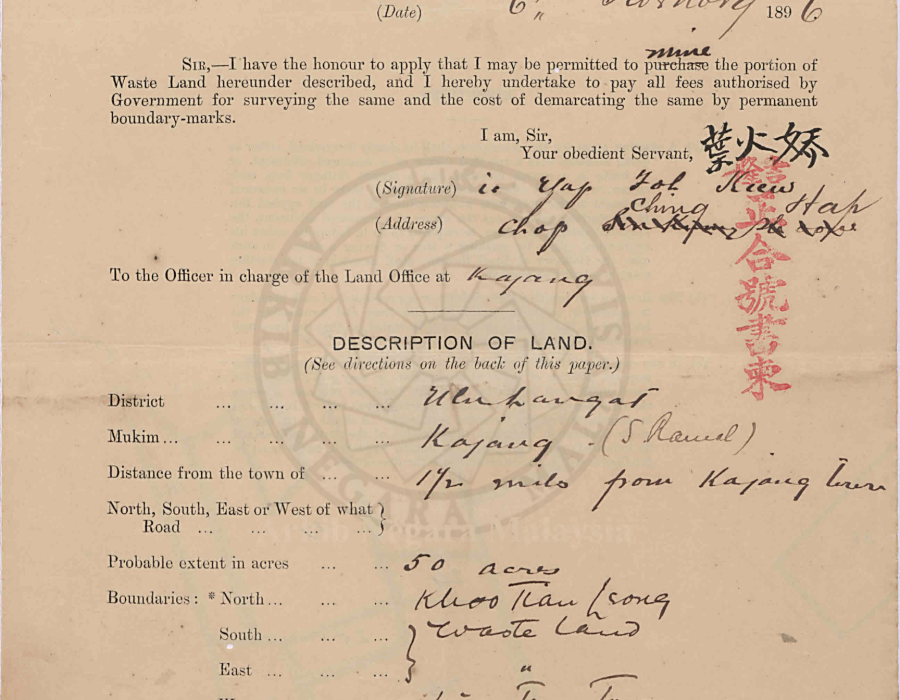 (Date) 6 " 1896
mine
SIR,—I have the honour to apply that I may be permitted to purchase the portion of
Waste Land hereunder described, and I hereby undertake to pay all fees authorised by
Government for surveying the same and the cost of demarcating the same by permanent
boundary-marks.
I am, Sir,
Your obedient Servant, 葉火嬌
(Signature) Yap Foh Kiew
Ching Hap
(Address) Chop
正合號書柬
To the Officer in charge of the Land Office at Kajang
DESCRIPTION OF LAND.
(See directions on the back of this paper.)
District ... ... ... ... Ulu Langat
Mukim ... ... ... ... ... Kajang
Distance from the town of ... ... ... 1½ miles from Kajang town
North, South, East or West of what }
Road ... ... ... ... }
Probable extent in acres ... ... 50 acres
Boundaries: * North ... ... ... Khoo Tian
South ... ... ... } Waste Land
East ... ... ... } "
ARKIB NEGARA MALAYSIA
Arkib Negara Malaysia